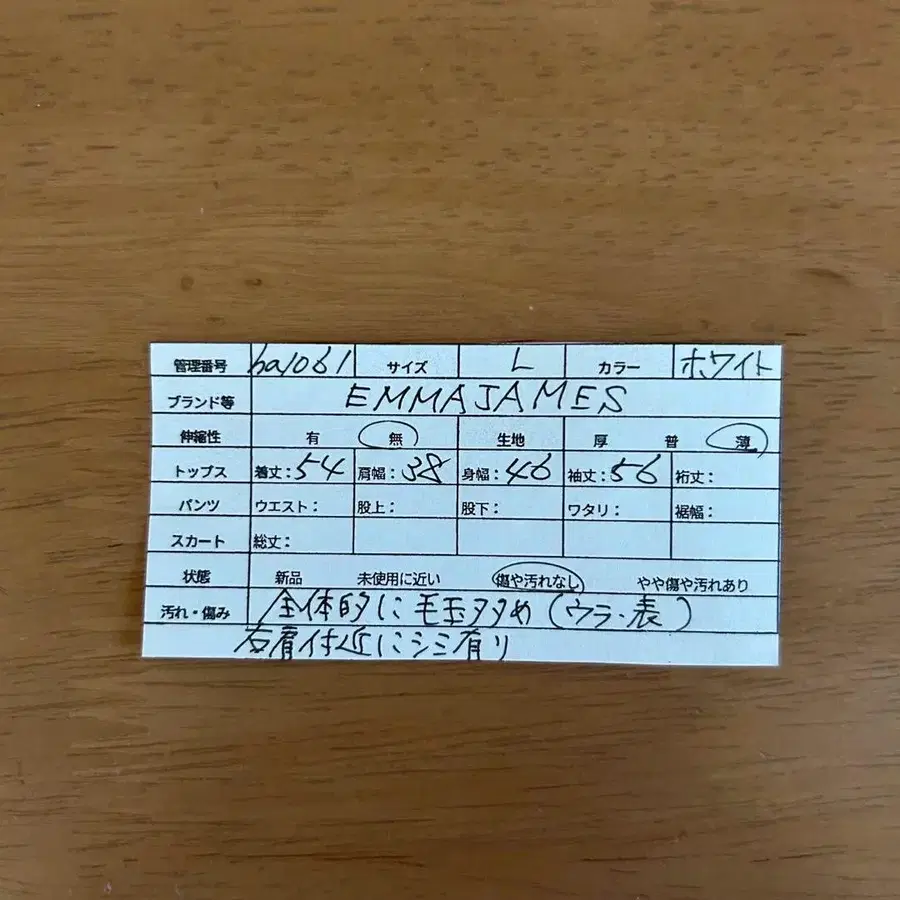 管理番号 ha1061 サイズ L カラー ホワイト
ブランド等 EMMAJAMES
伸縮性 有 無 生地 厚 普 薄
トップス 着丈:54 肩幅:38 身幅:46 袖丈:56 裄丈:
パンツ ウエスト: 股上: 股下: ワタリ: 裾幅:
スカート 総丈:
状態 新品 未使用に近い 傷や汚れなし やや傷や汚れあり
汚れ・傷み 全体的に毛玉多め(ウラ・表)
右肩付近にシミ有り